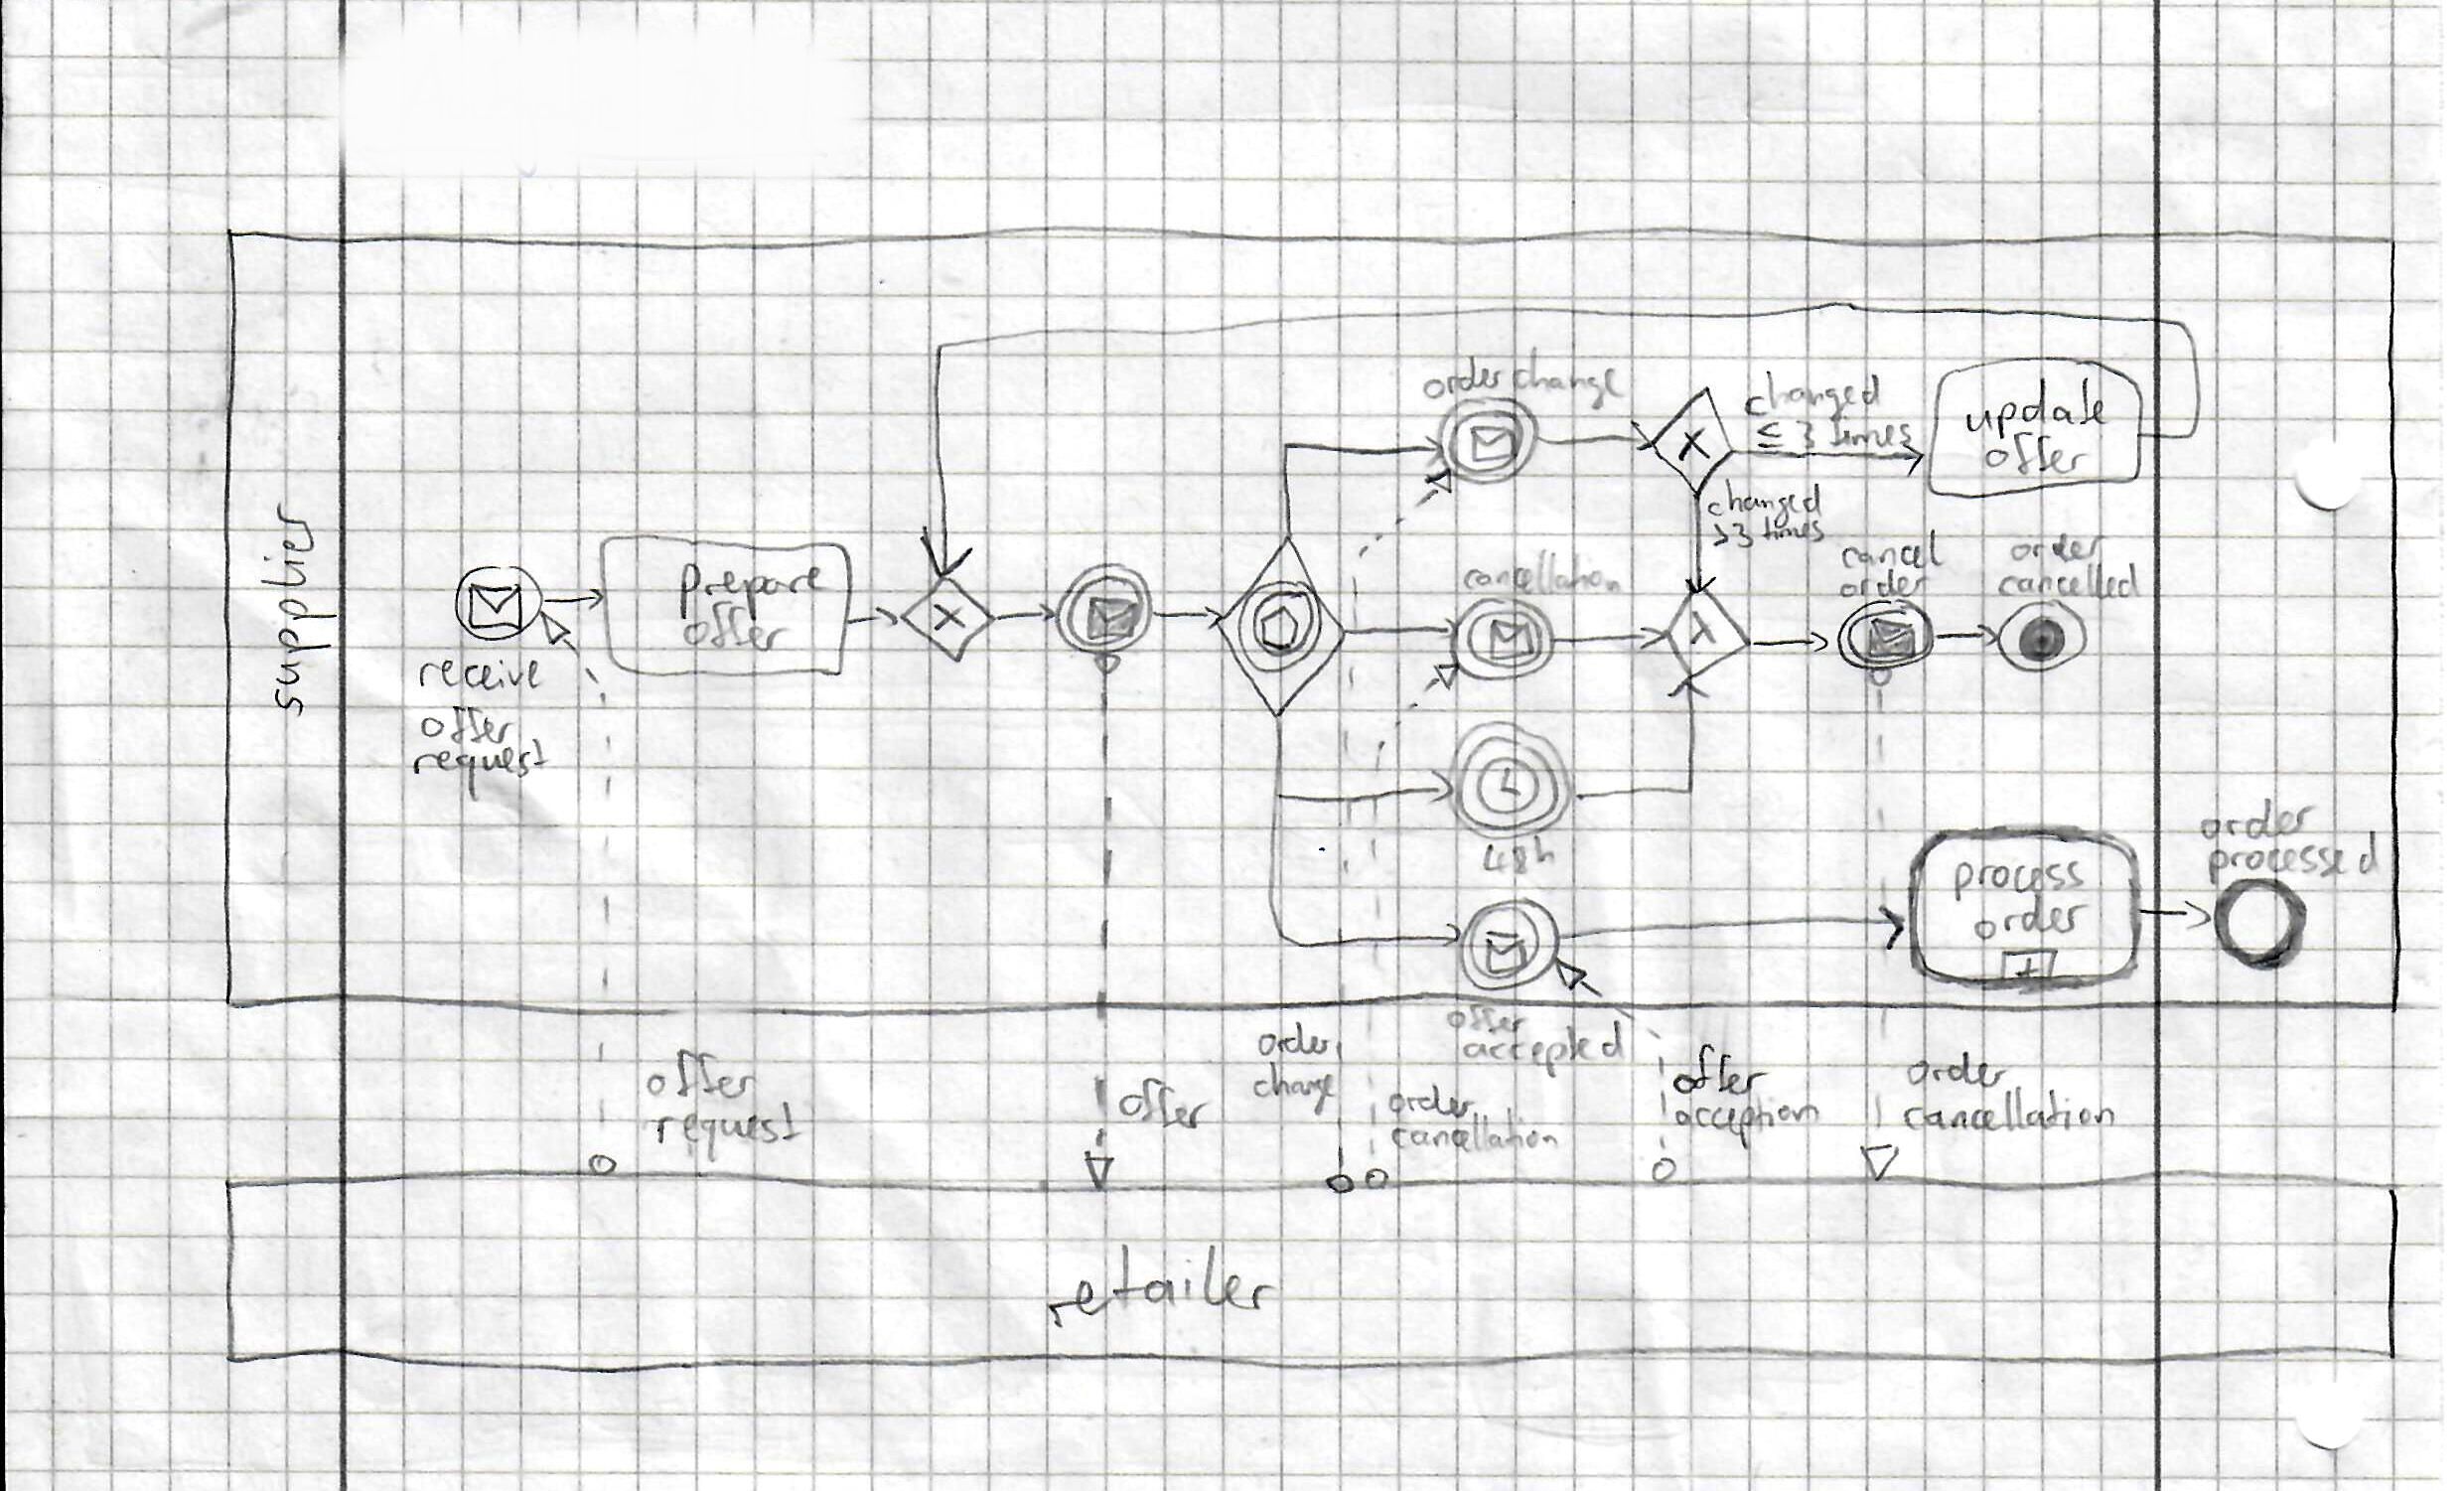 supplier
receive
offer
request
prepare
offer
order change
changed
≤ 3 times
update
offer
changed
>3 times
cancellation
cancel
order
order
cancelled
48h
offer
accepted
process
order
order
processed
offer
request
offer
order
change
order
cancellation
offer
acception
order
cancellation
retailer